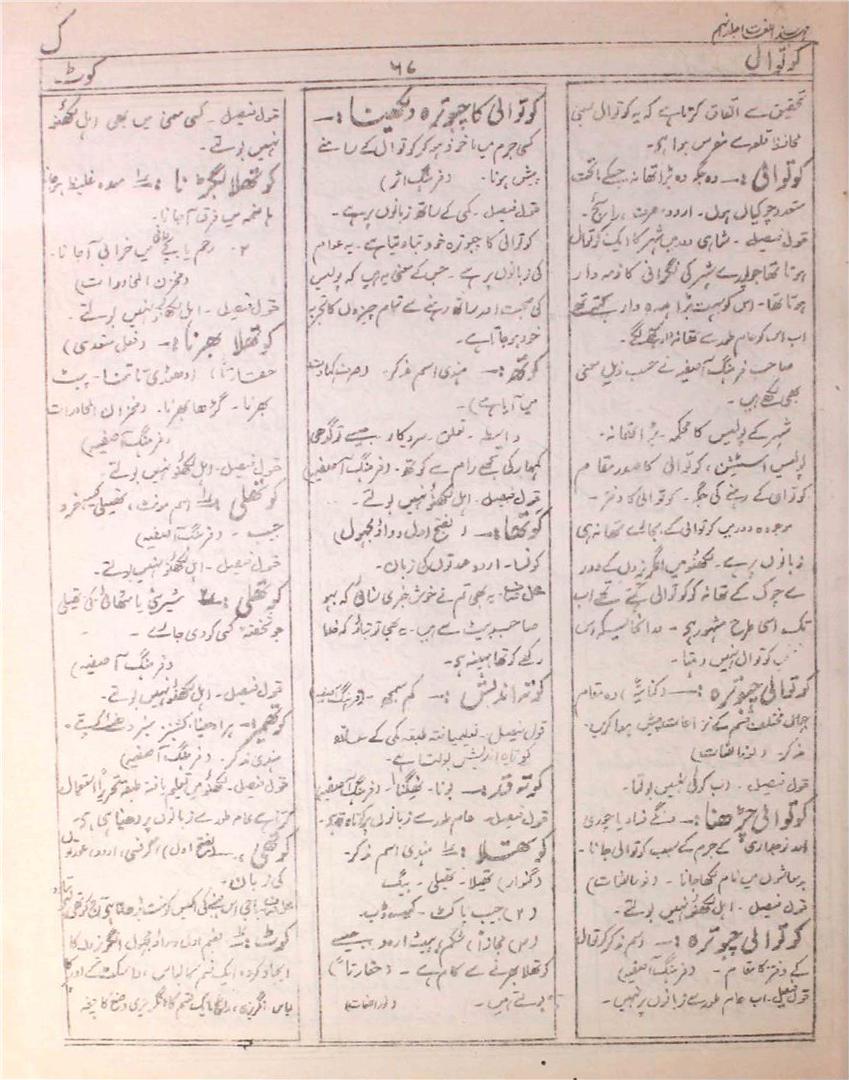 مہذب اللغات جلد نہم
ک
کوتوال
۶۷
کوٹ۔
تحقیق سے اتفاق کرتا ہے کہ یہ کوتوال بمعنی
محافظ قلعہ سے مفرس ہوا ہو۔
کوتوالی :۔ وہ جگہ وہ بڑا تھانہ جسکے ماتحت
متعدد چوکیاں ہوں۔ اردو مونث، رائج۔
قول فیصل۔ شاہی دور میں شہر کا ایک کوتوال
ہوتا تھا جو پورے شہر کی نگرانی کا ذمہ دار
ہوتا تھا۔ اس کو بہت بڑا عہدہ دار کہتے تھے
اب اس کو عام طور سے تھانہ دار کہنے لگے۔
صاحب فرہنگ آصفیہ نے حسب ذیل معنی
بھی لکھے ہیں۔
شہر کے پولیس کا محکمہ۔ بڑا تھانہ۔
پولیس اسٹیشن، کوتوالی کا صدر مقام
کوتوال کے رہنے کی جگہ۔ کوتوالی کا دفتر۔
موجودہ دور میں کوتوالی کے بجائے تھانہ ہی
زبانوں پر ہے۔ لکھنؤ میں انگریزوں کے دور
سے چوک کے تھانہ کو کوتوالی کہتے تھے اب
تک اسی طرح مشہور ہے۔
کوتوال نہیں رہتا۔
کوتوالی چبوترہ :۔ (کنایۃً) وہ مقام
جہاں مختلف قسم کے نزاعات پیش ہوا کریں۔
مذکر۔ (نور اللغات)
قول فیصل۔ اب کوئی نہیں بولتا۔
کوتوالی چڑھنا :۔ دنگے فساد یا چوری
اور فوجداری کے جرم کے سبب کوتوالی جانا۔
بدمعاشوں میں نام لکھا جانا۔ (نور اللغات)
قول فیصل۔ اہل لکھنؤ نہیں بولتے۔
کوتوالی چبوترہ :۔ اسم مذکر کوتوال
کے دفتر کا مقام۔ (فرہنگ آصفیہ)
قول فیصل۔ اب عام طور سے زبانوں پر نہیں۔
کوتوالی کا چبوترہ دیکھنا :۔
کسی جرم میں ماخوذ ہو کر کوتوال کے سامنے
پیش ہونا۔ (فرہنگ اثر)
قول فیصل۔ کمی کے ساتھ زبانوں پر ہے۔
کوتوالی کا چبوترہ خود بتا دیتا ہے۔ یہ عوام
کی زبانوں پر ہے۔ جس کے معنی یہ ہیں کہ پولیس
کی صحبت اور ساتھ رہنے سے تمام چیزوں کا تجربہ
خود ہو جاتا ہے۔
کوتھ :۔ ہندی اسم مذکر۔ (صرف کہاوت
میں آیا ہے)۔
واسطہ۔ تعلق۔ سروکار جیسے تو گدھی
کمہار کی تجھے رام سے کوتھ۔ (فرہنگ آصفیہ)
قول فیصل۔ اہل لکھنؤ نہیں بولتے۔
کوتھا :۔ (بفتح اول و واؤ مجہول)
کونسا۔ اردو عورتوں کی زبان۔
محل صرف۔ یہ بھی تم نے خوش خبری سنائی کہ بہو
صاحب پیٹ سے ہیں۔ یہ بھی تو بتاؤ کہ خدا
رکھے کوتھا مہینہ ہے۔
کوتہ اندیش :۔ کم سمجھ۔ (فرہنگ آصفیہ)
قول فیصل۔ تعلیم یافتہ طبقہ کمی کے ساتھ
کوتاہ اندیش بولتا ہے۔
کوتہ قد :۔ بونا۔ ٹھنگنا۔ (فرہنگ آصفیہ)
قول فیصل۔ عام طور سے زبانوں پر کوتاہ قد ہے۔
کوتھلا :۔ ہندی اسم مذکر۔
(گنوار) تھیلا۔ تھیلی۔ بیگ
(۲) جیب پاکٹ۔ کھیسہ ڈب۔
(۳) مجازاً) شکم، پیٹ اردو جیسے
کوتھلا بھرنے سے کام ہے۔ (حقارتاً)
بولتے ہیں۔ (نور اللغات)
قول فیصل۔ کسی معنی میں بھی اہل لکھنؤ
نہیں بولتے۔
کوتھلا بگڑنا :۔ ۱۔ معدہ غلیظ ہو جانا
ہاضمہ میں فرق آجانا۔
۲۔ رحم یا بچے دانی میں خرابی آجانا۔
(مخزن المحاورات)
قول فیصل۔ اہل لکھنؤ نہیں بولتے۔
کوتھلا بھرنا :۔ (فعل متعدی)
حقارتاً) اوجھڑی تاننا۔ پیٹ
بھرنا۔ گڑھا بھرنا۔ (مخزن المحاورات
(فرہنگ آصفیہ)
قول فیصل۔ اہل لکھنؤ نہیں بولتے
کوتھلی :۔ ۱۔ اسم مونث، تھیلی کیسہ خرد
جیب۔ (فرہنگ آصفیہ)
قول فیصل۔ اہل لکھنؤ نہیں بولتے۔
کوتھلی :۔ ۲۔ شیرینی یا مٹھائی کی تھیلی
جو تحفتہً کسی کو دی جائے۔
(فرہنگ آصفیہ)
قول فیصل۔ اہل لکھنؤ نہیں بولتے۔
کوتھمیر :۔ ہرا دھنیا۔ کشنیز سبز
ہندی مذکر۔ (فرہنگ آصفیہ)
قول فیصل۔ لکھنؤ میں تعلیم یافتہ طبقہ تحریراً استعمال
کرتا ہے عام طور سے زبانوں پر دھنیا ہی ہے۔
کوتھی :۔ (بفتح اول) اردو، عورتوں
کی زبان۔
کوٹ :۔ بضم اول و واؤ مجہول انگریزوں کا
ایجاد کردہ ایک قسم کا لباس،
لباس انگریزی، ایک قسم کا انگریزی وضع کا چغہ